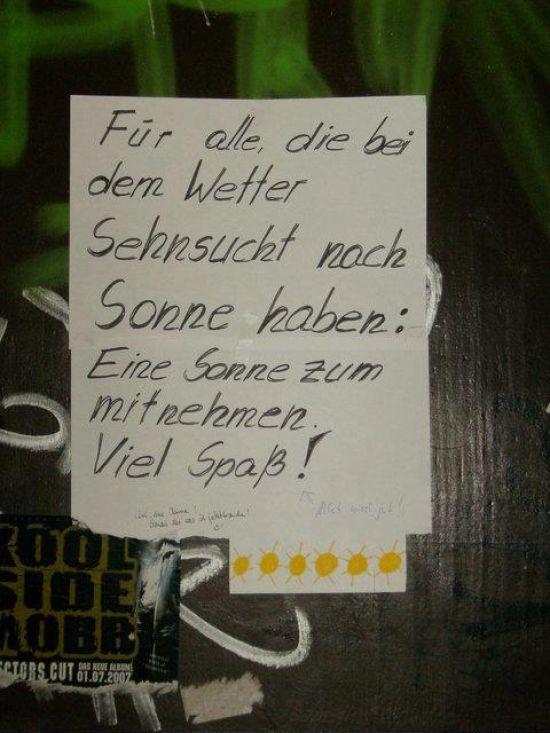 Für alle, die bei
dem Wetter
Sehnsucht nach
Sonne haben:
Eine Sonne zum
mitnehmen.
Viel Spaß!
KOOL
SIDE
MOBB
ECTORS CUT DAS NEUE ALBUM
01.07.2007